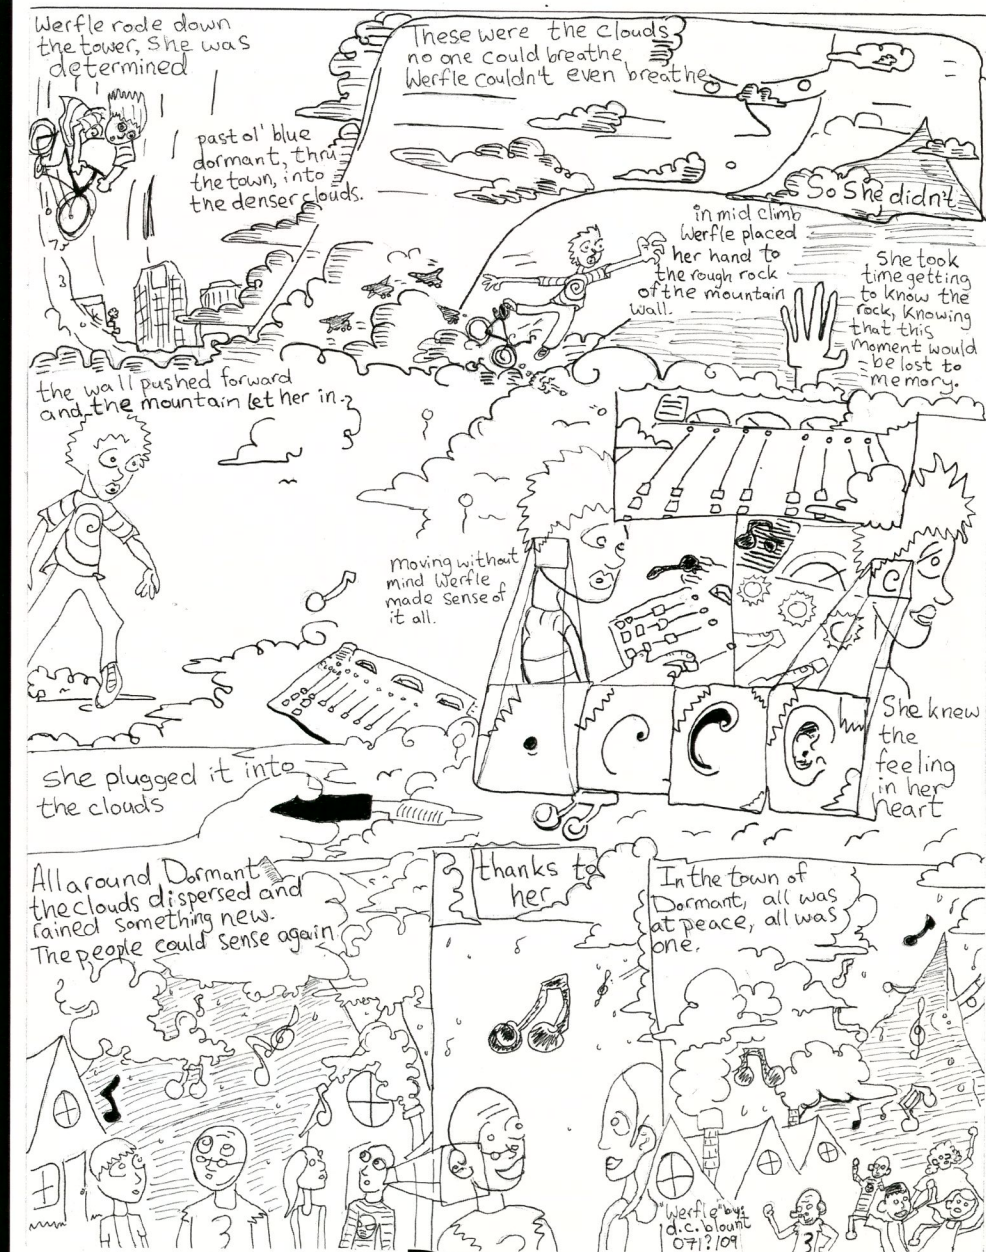 Werfle rode down
the tower, She was
determined
past ol' blue
dormant, thru
the town, into
the denser clouds.
These were the clouds
no one could breathe
Werfle couldn't even breathe
So She didn't
in mid climb
Werfle placed
her hand to
the rough rock
of the mountain
wall.
She took
time getting
to know the
rock, Knowing
that this
moment would
be lost to
memory.
the wall pushed forward
and the mountain let her in.
moving without
mind Werfle
made sense of
it all.
She knew
the
feeling
in her
heart
she plugged it into
the clouds
All around Dormant
the clouds dispersed and
rained something new.
The people could sense again
thanks to
her
In the town of
Dormant, all was
at peace, all was
one.
3
3
"Werfle" by:
d.c. blount
071?/09